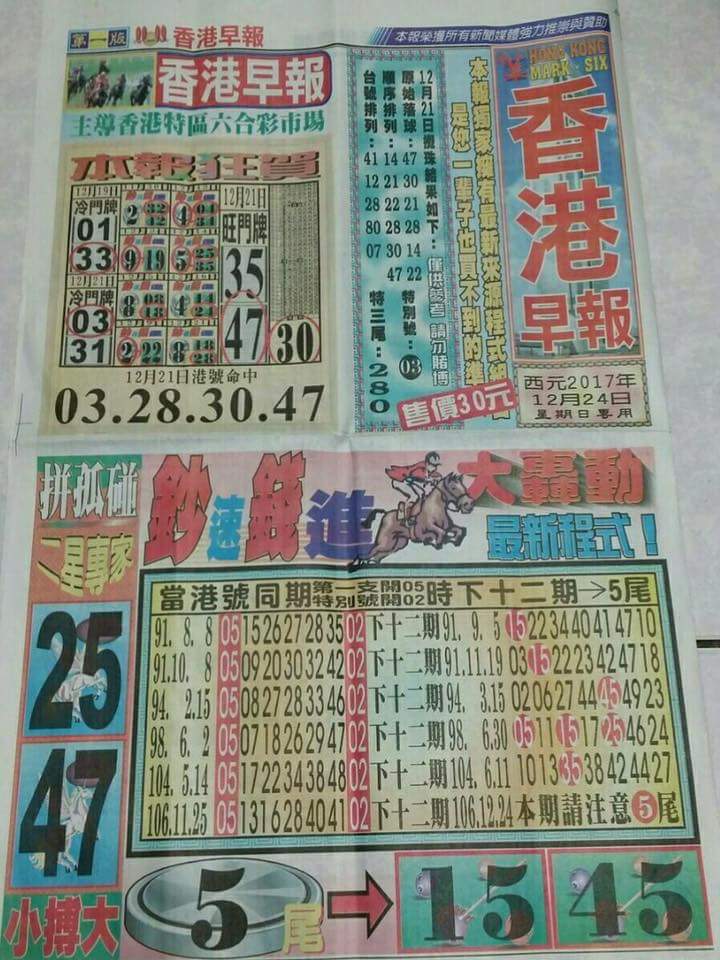 第一版 香港早報
本報榮獲所有新聞媒體強力推崇與贊助
香港早報
主導香港特區六合彩市場
HONG KONG
MARK · SIX
香港早報
西元2017年
12月24日
星期日專用
本報獨家擁有最新來源程式
是您一輩子也買不到的準
12月21日攪珠結果如下：僅供參考 請勿賭博
原始落球：47 30 22 21 28 14 特別號：03
順序排列：14 21 22 28 30 47
台號排列：41 12 28 80 07 特三尾：280
售價30元
本報狂賀
12月19日
冷門牌
01
33
12月21日
冷門牌
03
31
2 32 12
4 04 34
9 19
5 25 35
8 08 18
4 14 24
2 22
8 18 28
12月21日
旺門牌
35
47
30
12月21日港號命中
03.28.30.47
拼孤碰
二星專家
25
47
小搏大
鈔速錢進
大轟動
最新程式！
當港號同期第一支開05特別號開02時下十二期→5尾
91. 8. 8 05 15 26 27 28 35 02 下十二期 91. 9. 5 15 22 34 40 41 47 10
91.10. 8 05 09 20 30 32 42 02 下十二期 91.11.19 03 15 22 23 42 47 18
94. 2.15 05 08 27 28 33 46 02 下十二期 94. 3.15 02 06 27 44 45 49 23
98. 6. 2 05 07 18 26 29 47 02 下十二期 98. 6.30 05 11 15 17 25 46 24
104. 5.14 05 17 22 34 38 48 02 下十二期 104. 6.11 10 13 35 38 42 44 27
106.11.25 05 13 16 28 40 41 02 下十二期 106.12.24 本期請注意5尾
5尾→15 45